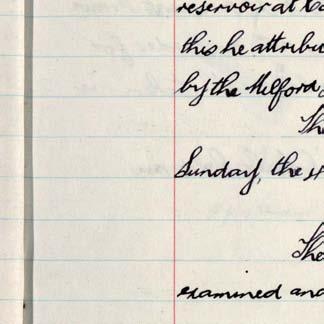 reservoir at
this he attribu
by the Milford
The
Sunday, the
The
examined and